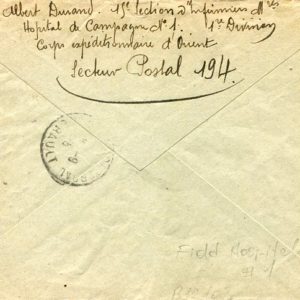 Albert Durand. 15e Section d'Infirmiers Mres
Hopital de Campagne No 1. 1re Division
Corps expéditionnaire d'Orient
Secteur Postal 194.
HERAULT
Field Hospital